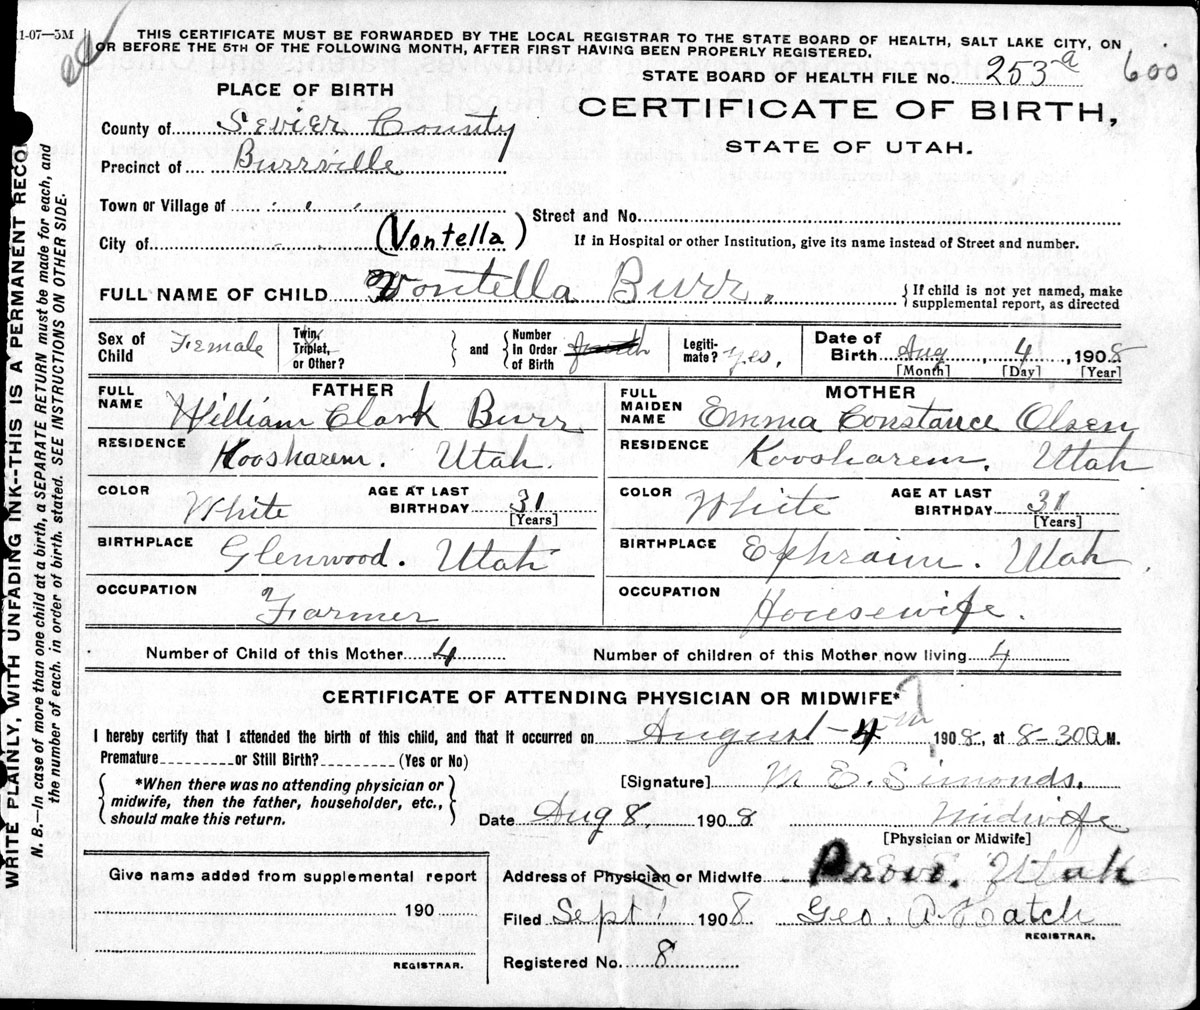 1-07—3M
THIS CERTIFICATE MUST BE FORWARDED BY THE LOCAL REGISTRAR TO THE STATE BOARD OF HEALTH, SALT LAKE CITY, ON
OR BEFORE THE 5TH OF THE FOLLOWING MONTH, AFTER FIRST HAVING BEEN PROPERLY REGISTERED.
STATE BOARD OF HEALTH FILE No. 253a 600
PLACE OF BIRTH
CERTIFICATE OF BIRTH,
STATE OF UTAH.
County of Sevier County
Precinct of Burrville
Town or Village of
Street and No.
City of
(Vontella)
If in Hospital or other Institution, give its name instead of Street and number.
FULL NAME OF CHILD Vontella Burr. { If child is not yet named, make
supplemental report, as directed
Sex of Child Female
Twin, Triplet, or Other? } and { Number In Order of Birth
Legiti-mate? yes.
Date of Birth Aug, 4, 1908
[Month] [Day] [Year]
FATHER
FULL NAME William Clark Burr
RESIDENCE Koosharem. Utah.
COLOR White AGE AT LAST BIRTHDAY 31
[Years]
BIRTHPLACE Glenwood. Utah
OCCUPATION Farmer
MOTHER
FULL MAIDEN NAME Emma Constance Olsen
RESIDENCE Koosharem. Utah
COLOR White AGE AT LAST BIRTHDAY 31
[Years]
BIRTHPLACE Ephraim. Utah
OCCUPATION Housewife.
Number of Child of this Mother 4 Number of children of this Mother now living 4
CERTIFICATE OF ATTENDING PHYSICIAN OR MIDWIFE*
I hereby certify that I attended the birth of this child, and that it occurred on August-4th, 1908, at 8-30 A.M.
Premature or Still Birth? (Yes or No)
{ *When there was no attending physician or
midwife, then the father, householder, etc.,
should make this return. }
[Signature] M E. Simonds.
Date Aug 8 1908 Midwife
[Physician or Midwife]
Address of Physician or Midwife Provo. Utah
Filed Sept 1 1908 Geo. A. Hatch
REGISTRAR.
Registered No. 8
Give name added from supplemental report
190
REGISTRAR.
WRITE PLAINLY, WITH UNFADING INK--THIS IS A PERMANENT RECO
N. B.—In case of more than one child at a birth, a SEPARATE RETURN must be made for each, and
the number of each. in order of birth, stated. SEE INSTRUCTIONS ON OTHER SIDE.